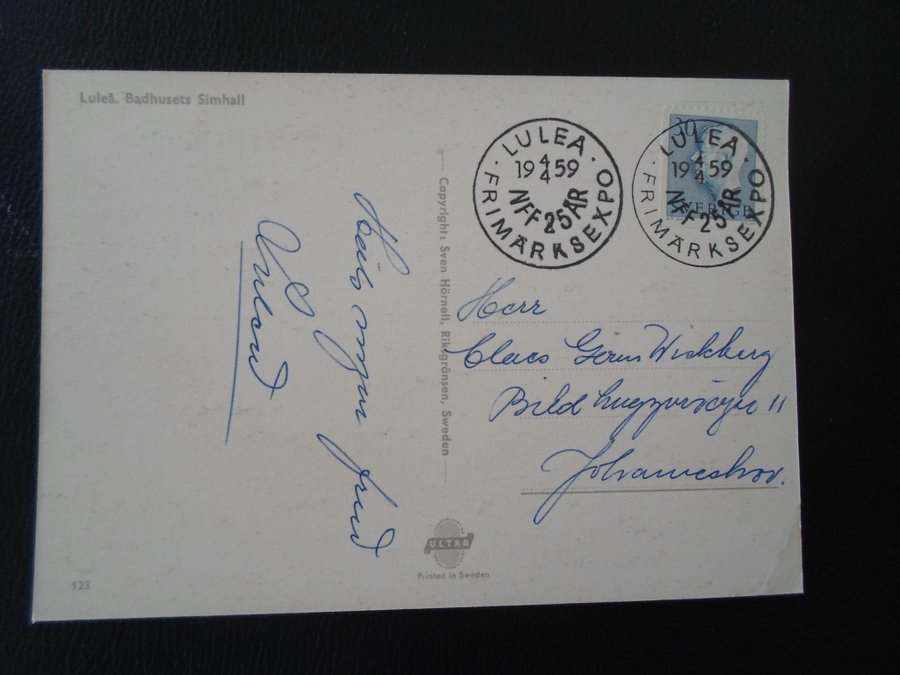 Luleå. Badhusets Simhall
LULEÅ.
19 4/4 59
NFF 25 ÅR
· FRIMÄRKSEXPO
30
SVERIGE
LULEÅ.
19 4/4 59
NFF 25 ÅR
· FRIMÄRKSEXPO
Copyright: Sven Hörnell, Riksgränsen, Sweden
Herr
Claes Göran Wickberg
Bildhuggarvägen 11
Johanneshov.
ULTRA
Printed in Sweden
123